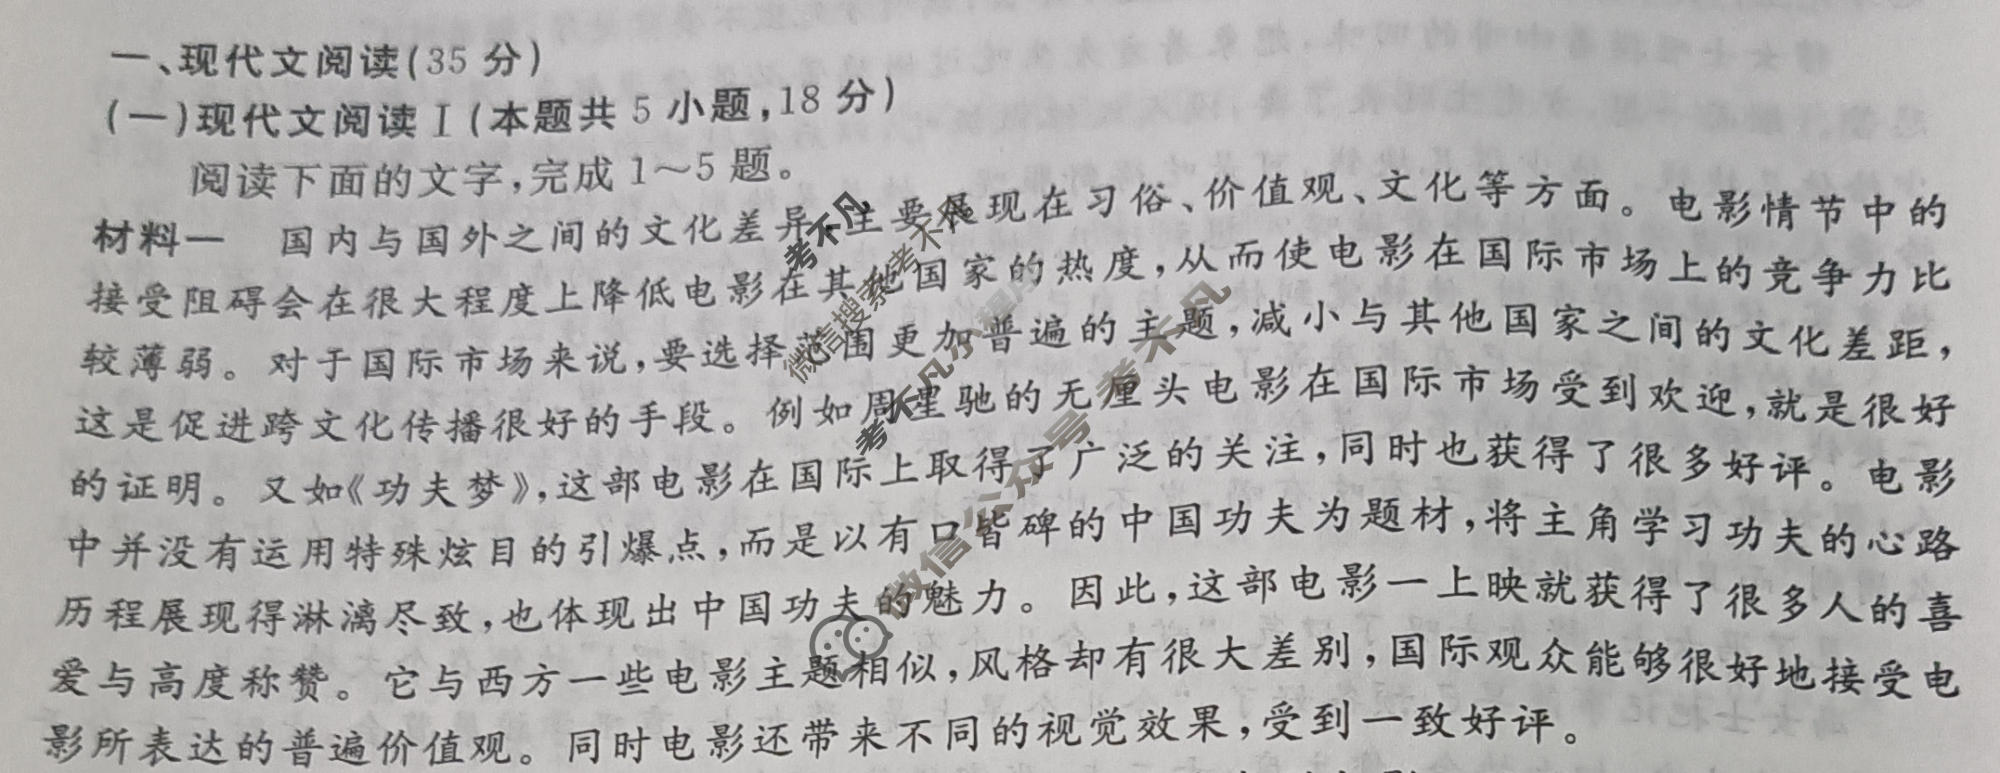 一、现代文阅读(35分)
(一)现代文阅读Ⅰ(本题共5小题,18分)
阅读下面的文字,完成1~5题。
材料一 国内与国外之间的文化差异,主要展现在习俗、价值观、文化等方面。电影情节中的
接受阻碍会在很大程度上降低电影在其他国家的热度,从而使电影在国际市场上的竞争力比
较薄弱。对于国际市场来说,要选择范围更加普遍的主题,减小与其他国家之间的文化差距,
这是促进跨文化传播很好的手段。例如周星驰的无厘头电影在国际市场受到欢迎,就是很好
的证明。又如《功夫梦》,这部电影在国际上取得了广泛的关注,同时也获得了很多好评。电影
中并没有运用特殊炫目的引爆点,而是以有口皆碑的中国功夫为题材,将主角学习功夫的心路
历程展现得淋漓尽致,也体现出中国功夫的魅力。因此,这部电影一上映就获得了很多人的喜
爱与高度称赞。它与西方一些电影主题相似,风格却有很大差别,国际观众能够很好地接受电
影所表达的普遍价值观。同时电影还带来不同的视觉效果,受到一致好评。
考不凡
微信搜索考不凡
微信公众号 考不凡